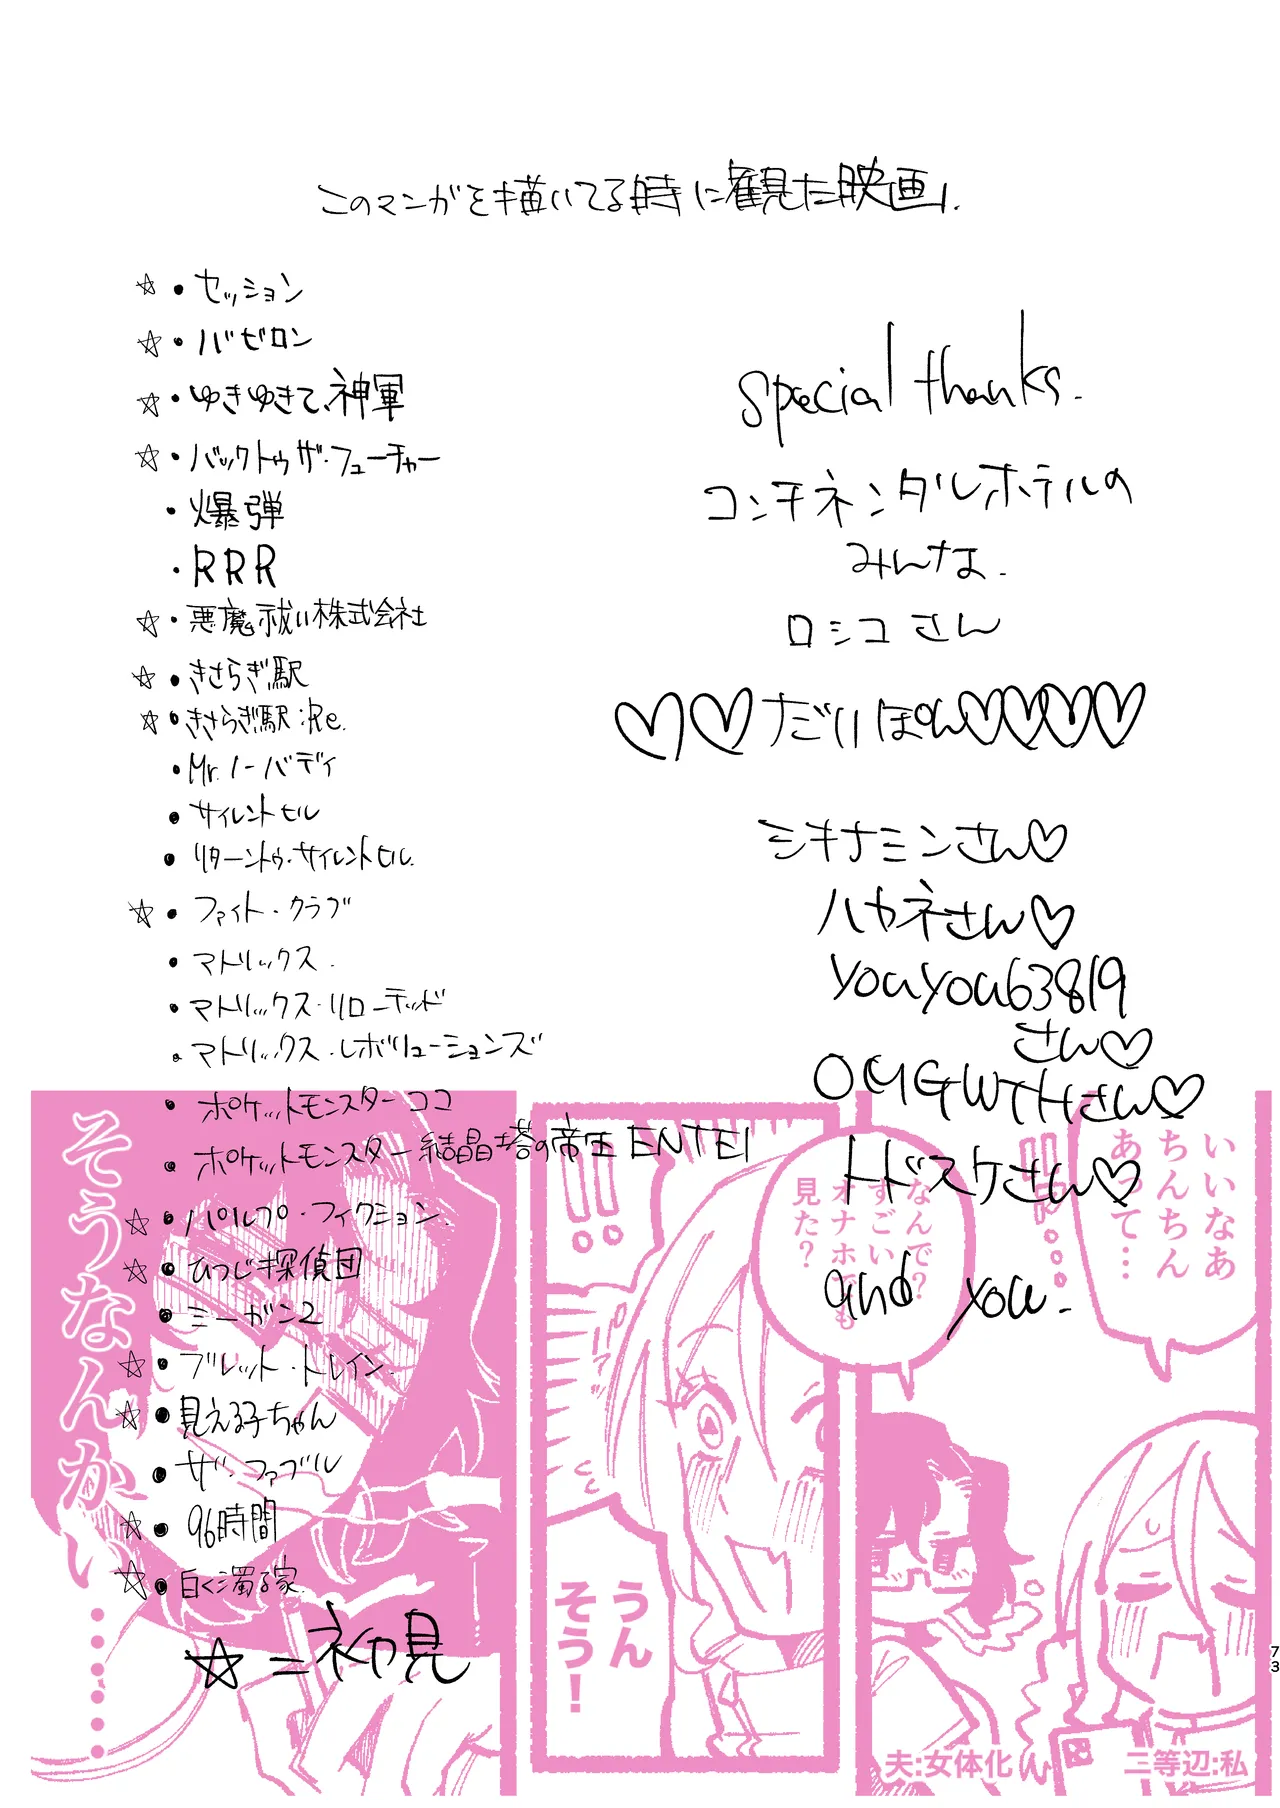 このマンガを描いてる時に観た映画.
☆・セッション
☆・バビロン
☆・ゆきゆきて、神軍
☆・バックトゥザ・フューチャー
・爆弾
・RRR
☆・悪魔祓い株式会社
☆・きさらぎ駅
☆・きさらぎ駅:Re.
・Mr.ノーバディ
・サイレントヒル
・リターントゥ・サイレントヒル.
☆・ファイト・クラブ
・マトリックス.
・マトリックス・リローデッド
・マトリックス・レボリューションズ
・ポケットモンスター ココ
・ポケットモンスター 結晶塔の帝王 ENTEI
☆・パルプ・フィクション.
☆・ひつじ探偵団
・ミーガン2
☆・ブレット・トレイン.
☆・見える子ちゃん
・ザ・ファブル
☆・96時間
☆・白く濁る家.
☆=初見
special thanks.
コンチネンタルホテルの
みんな.
ロシコさん
♡♡だいぽん♡♡♡♡
シキナミンさん♡
ハカネさん♡
youyou63819
さん♡
OMGWTHさん♡
トドスケさん♡
and you.
いいなあ
ちんちん
あって…
!!
なんで?
すごい
オナホでも
見た?
!!
うん
そう!
そうなんかい……
夫:女体化
二等辺:私
73